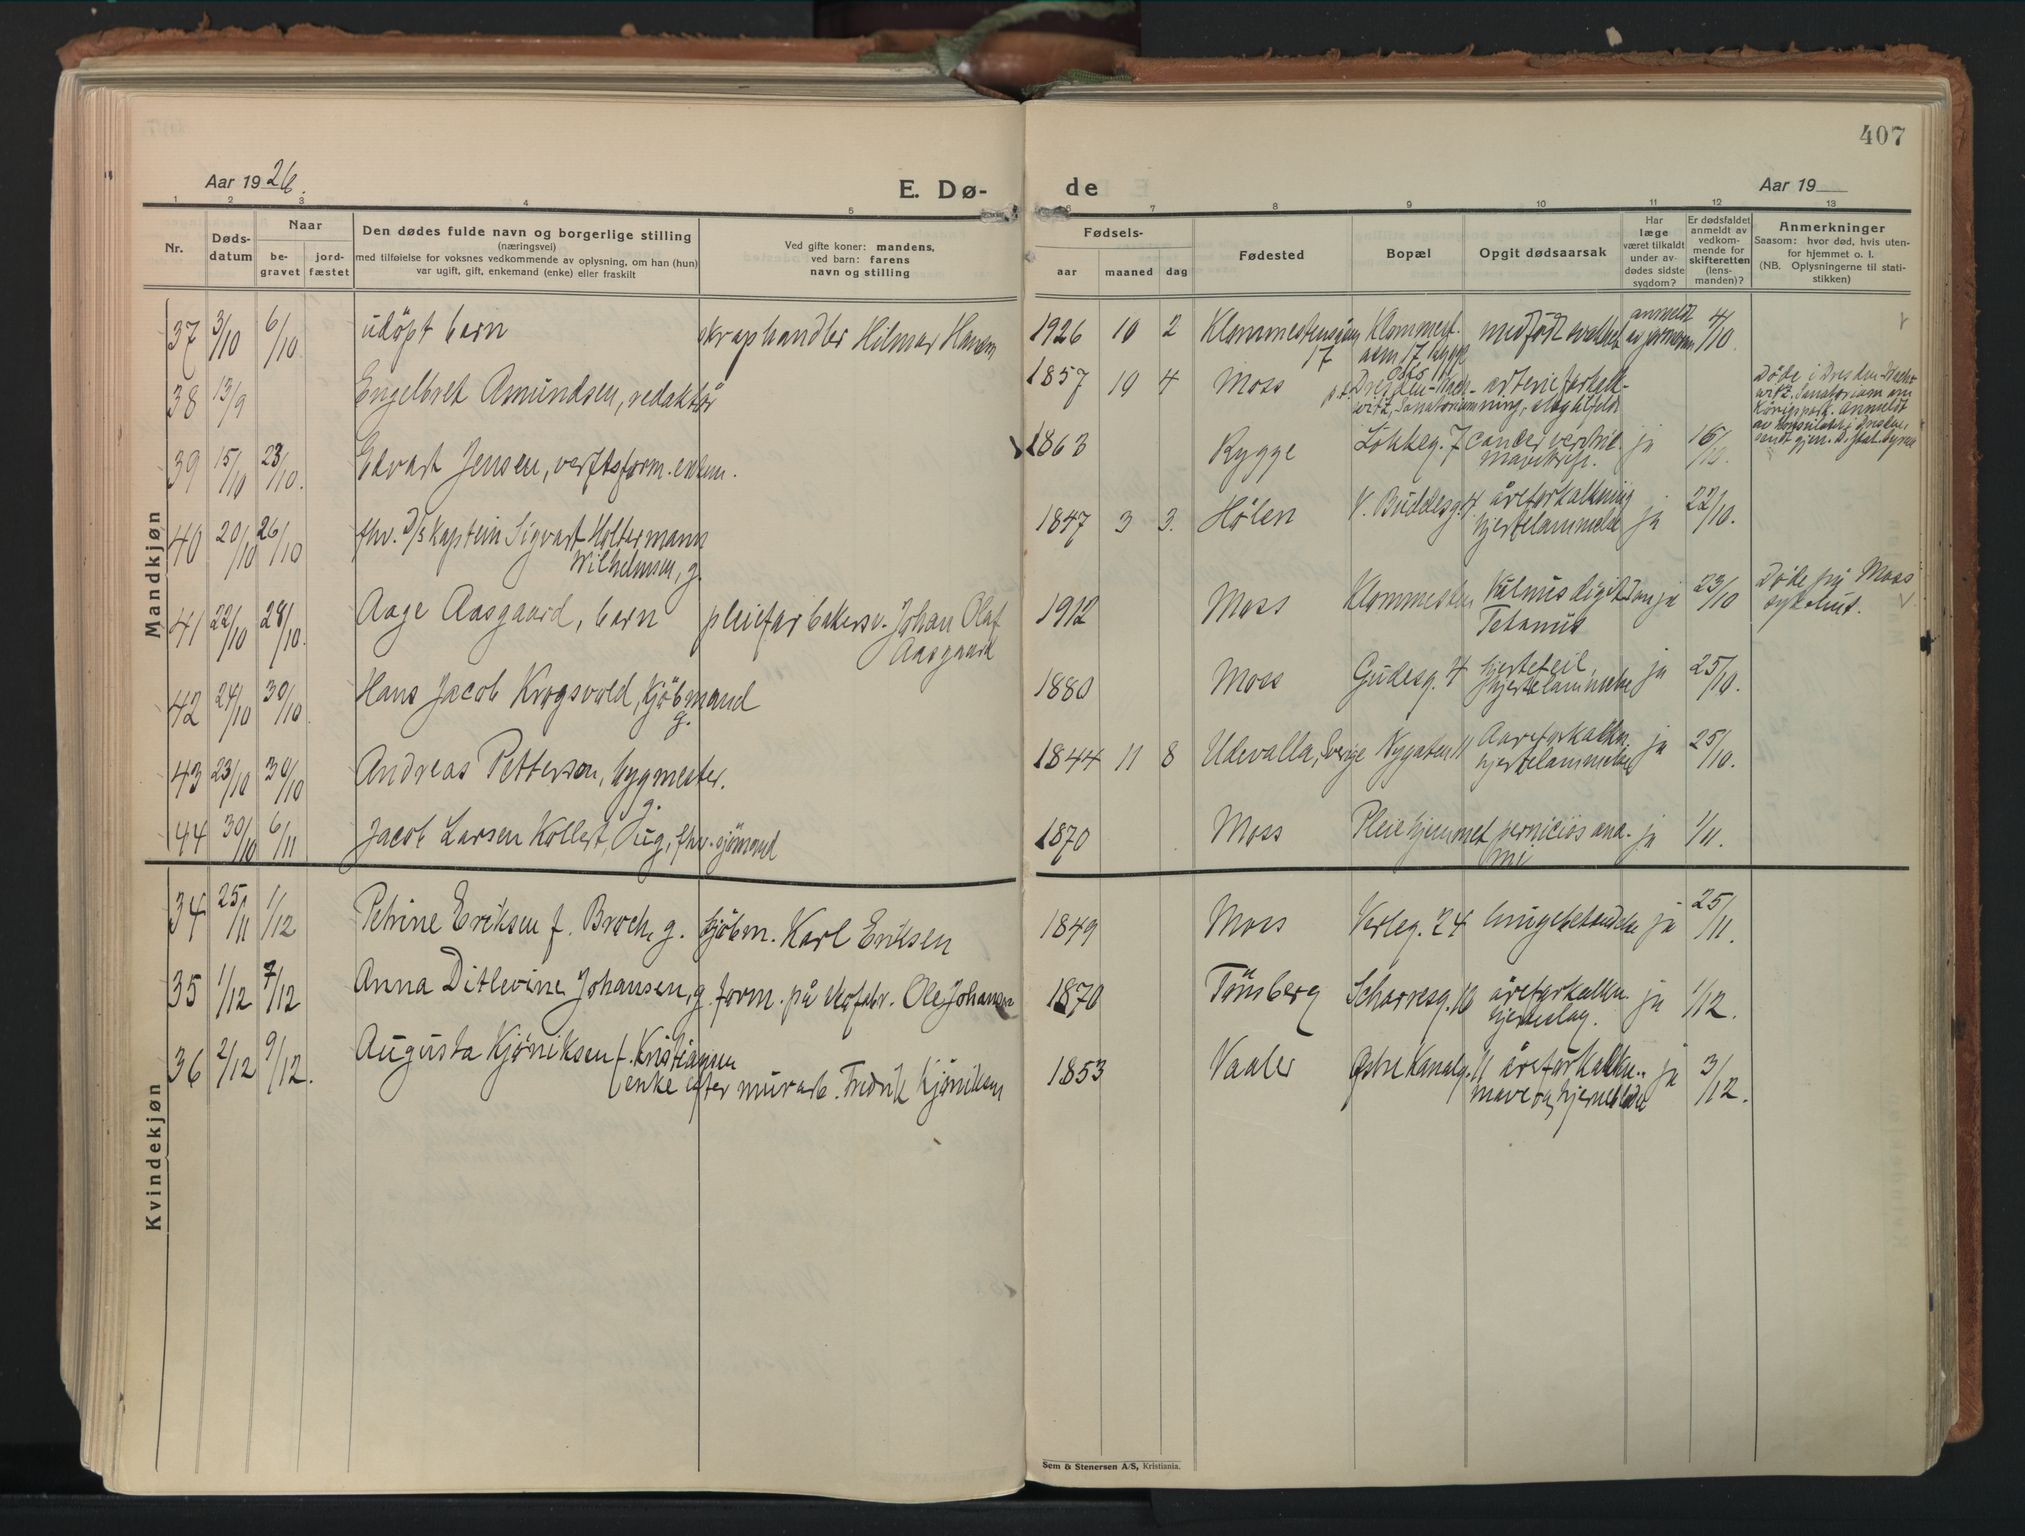 407
Aar 1926.
E. Dø-
de
Aar 19
1 2 3 4 5 6 7 8 9 10 11 12 13
Nr.
Døds-
datum
Naar
be-
gravet
jord-
fæstet
Den dødes fulde navn og borgerlige stilling
(næringsvei)
med tilføielse for voksnes vedkommende av oplysning, om han (hun)
var ugift, gift, enkemand (enke) eller fraskilt
Ved gifte koner: mandens,
ved barn: farens
navn og stilling
Fødsels-
aar maaned dag
Fødested
Bopæl
Opgit dødsaarsak
Har
læge
været tilkaldt
under av-
dødes sidste
sygdom?
Er dødsfaldet
anmeldt av
vedkom-
mende for
skifteretten
(lens-
manden)?
Anmerkninger
Saasom: hvor død, hvis uten-
for hjemmet o. l.
(NB. Oplysningerne til stati-
stikken)
Mandkjøn
37 3/10 6/10 udöpt barn skraphandler Hilmar Hansen 1926 10 2 17 17 medfödt svakhet anmeldt av jormoren 4/10
38 13/9 Engelbret Amundsen, redaktör 1857 10 4 Moss Oslo
39 15/10 23/10. Edvart Jensen, verftsform. enkem. 1863 Rygge Lökkeg. 7 cancer ventric. ja 16/10
40 20/10 26/10 fhv. D/s Kaptein Sigvart Holtermann
Wilhelmsen, g. 1847 3 3. Hølen V. Buddesg. 4. åreforkalkning
hjertelammelse ja 22/10.
41 22/10 28/10. Aage Aasgaard, barn pleiefar bakersv. Johan Olaf
Aasgaard 1912 Moss Vulnus digit
Tetanus ja 23/10 Döde på Moss
sykehus.
42 24/10 30/10 Hans Jacob Krogsvold, kjöbmand
g. 1880 Moss Gudesg. 4 hjertefeil,
hjertelammelse ja 25/10.
43 23/10 30/10 Andreas Petterson, bygmester.
g. 1844 11 8 Udevalla, Sverige Nygaten 11 Aareforkalkn.
hjertelammelse ja 25/10.
44 30/10 6/11 Jacob Larsen Kollert, ug, fhv. sjömand 1870 Moss Pleiehjemmet perniciös anæ-
mi ja 1/11.
Kvindekjøn
34 25/11 1/12 Petrine Eriksen f. Broch, g. kjöbm. Karl Eriksen 1849 Moss Verleg. 24 lungebetændelse ja 25/11.
35 1/12 7/12 Anna Ditlevine Johansen, g. form. på Ole Johansen 1870 Tönsberg åreforkalkn.
hjerneslag. ja 1/12.
36 2/12 9/12. Augusta Kjøniksen f. Kristiansen
enke efter murarb. Fredrik Kjøniksen 1853 Vaaler Østre Kanalg. 11 åreforkalkn..
ja 3/12.
Sem & Stenersen A/S, Kristiania.